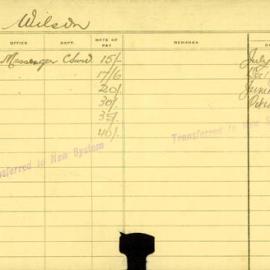 Wilson
OFFICE DEPT. RATE OF PAY REMARKS
Messenger 15/- July
" " 17/6
20/- June
30/-
35/-
40/-
Transferred to New S
nsferred to New System